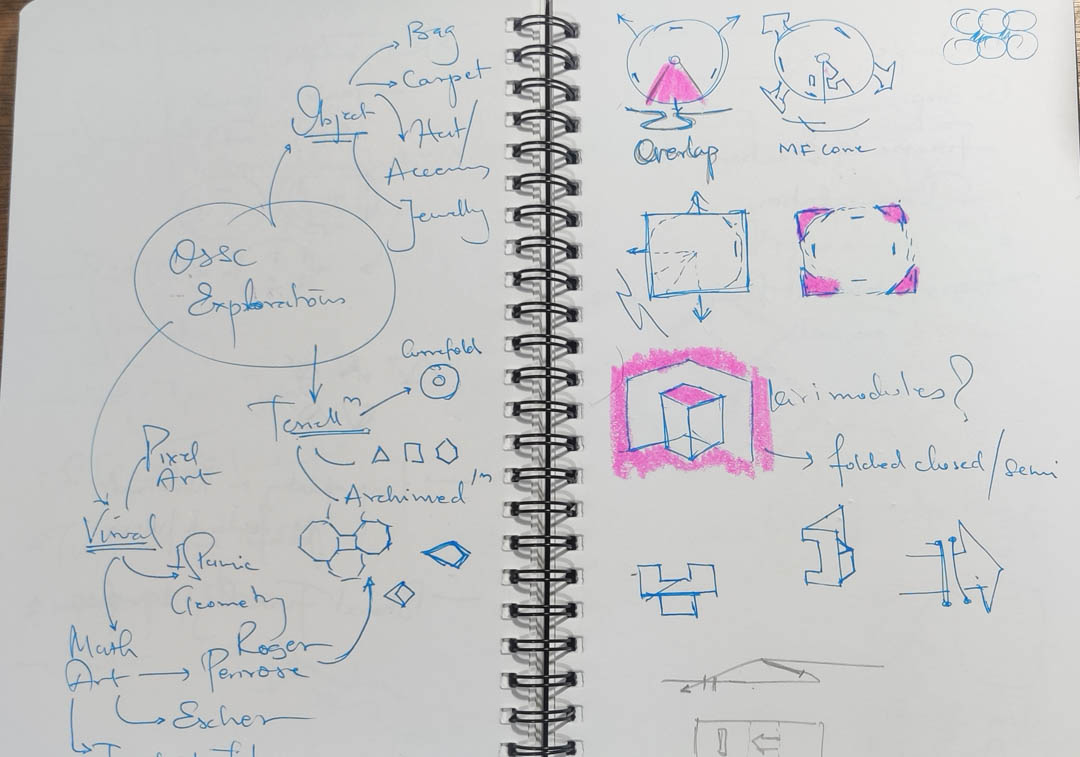 Bag
Carpet
Object
Hat/
Jewelly
OSSC
Explorations
Curvefold
Tessellⁿ
Pixel
Art
Archimedⁱⁿ
Visual
Islamic
Geometry
Math
Art
Roger
Penrose
Escher
Overlap
MF cone
kirimodules?
folded closed/semi